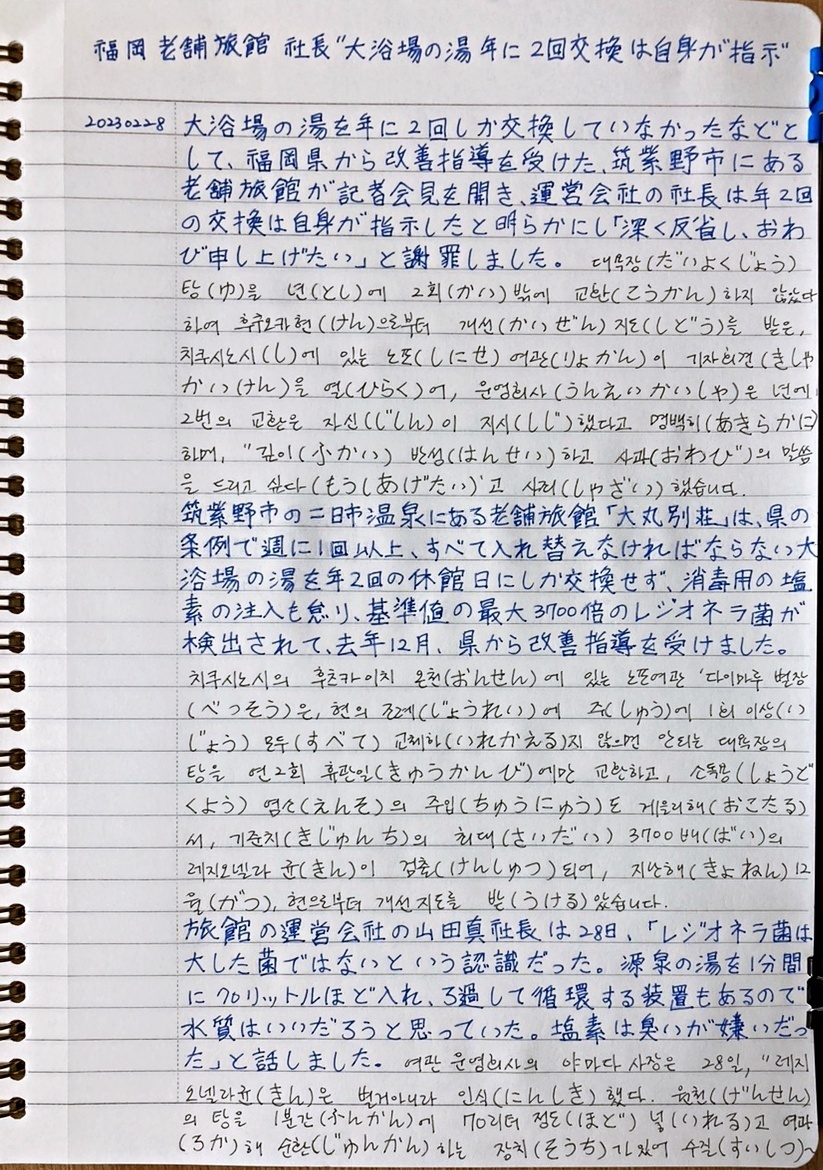 福岡 老舗旅館 社長"大浴場の湯 年に2回交換は自身が指示"
20230228 大浴場の湯を年に2回しか交換していなかったなどと
して、福岡県から改善指導を受けた、筑紫野市にある
老舗旅館が記者会見を開き、運営会社の社長は年2回
の交換は自身が指示したと明らかにし「深く反省し、おわ
び申し上げたい」と謝罪しました。 대욕장(だいよくじょう)
탕(ゆ)을 년(とし)에 2회(かい)밖에 교환(こうかん)하지 않았다
하여 후쿠오카현(けん)으로부터 개선(かいぜん)지도(しどう)를 받은,
치쿠시노시(し)에 있는 노포(しにせ) 여관(りょかん)이 기자회견(きしゃ
かい(けん)을 열(ひらく)어, 운영회사(うんえいかいしゃ)은 년에
2번의 교환은 자신(じしん)이 지시(しじ)했다고 명백히(あきらかに)
하며, "깊이(ふかい) 반성(はんせい)하고 사과(おわび)의 말씀
을 드리고 싶다(もうしあげたい)'고 사죄(しゃざい)했습니다.
筑紫野市の二日市温泉にある老舗旅館「大丸別荘」は、県の
条例で週に1回以上、すべて入れ替えなければならない大
浴場の湯を年2回の休館日にしか交換せず、消毒用の塩
素の注入も怠り、基準値の最大3700倍のレジオネラ菌が
検出されて、去年12月、県から改善指導を受けました。
치쿠시노시의 후츠카이치 온천(おんせん)에 있는 노포여관 '다이마루 별장
(べっそう)은, 현의 조례(じょうれい)에 주(しゅう)에 1회 이상(い
じょう) 모두(すべて) 교체하(いれかえる)지 않으면 안되는 대욕장의
탕을 연2회 휴관일(きゅうかんび)에만 교환하고, 소독용(しょうど
くよう) 염소(えんそ)의 주입(ちゅうにゅう)도 게을리해(おこたる)
서, 기준치(きじゅんち)의 최대(さいだい) 3700배(ばい)의
레지오넬라 균(きん)이 검출(けんしゅつ)되어, 지난해(きょねん)12
월(がつ), 현으로부터 개선지도를 받(うける)았습니다.
旅館の運営会社の山田真社長は28日、「レジオネラ菌は
大した菌ではないという認識だった。源泉の湯を1分間
に70リットルほど入れ、ろ過して循環する装置もあるので
水質はいいだろうと思っていた。塩素は臭いが嫌いだっ
た」と話しました。 여관 운영회사의 야마다 사장은 28일, "레지
오넬라균(きん)은 별거아니라 인식(にんしき)했다. 원천(げんせん)
의 탕을 1분간(ふんかん)에 70리터 정도(ほど) 넣(いれる)고 여과
(ろか)해 순환(じゅんかん)하는 장치(そうち)가있어 수질(すいしつ)~